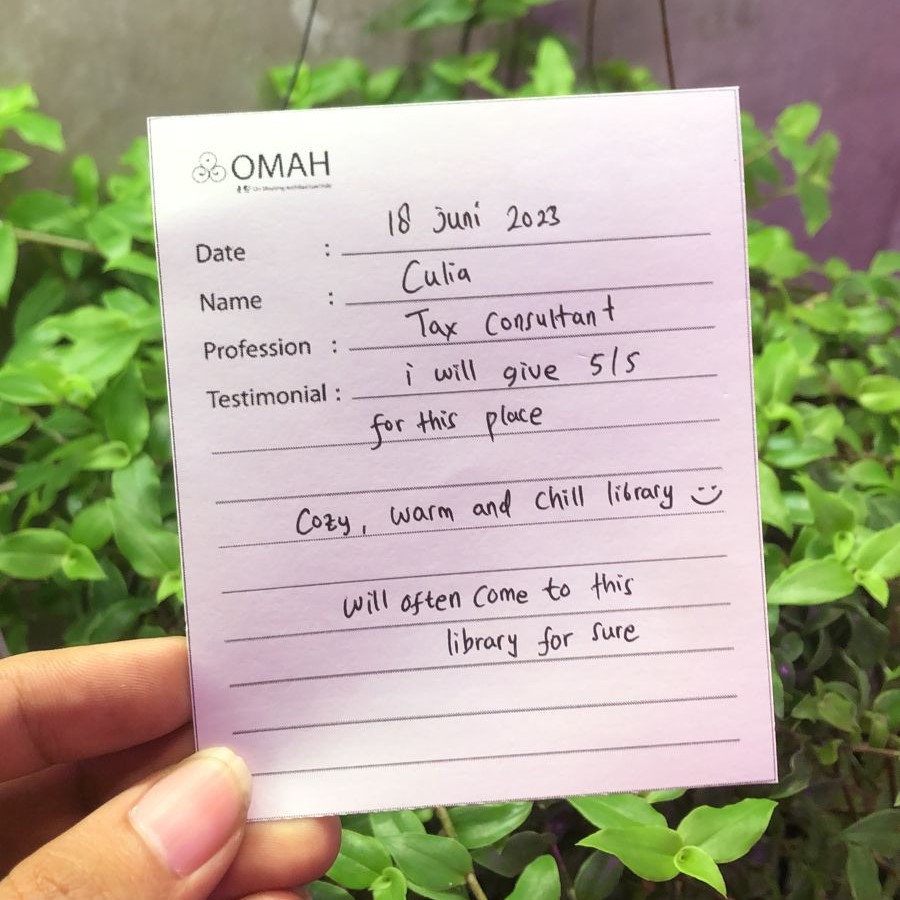 OMAH
On Moving Architecture Hub
Date : 18 juni 2023
Name : Culia
Profession : Tax Consultant
Testimonial : i will give 5/5
for this place
Cozy, warm and chill library
will often come to this
library for sure